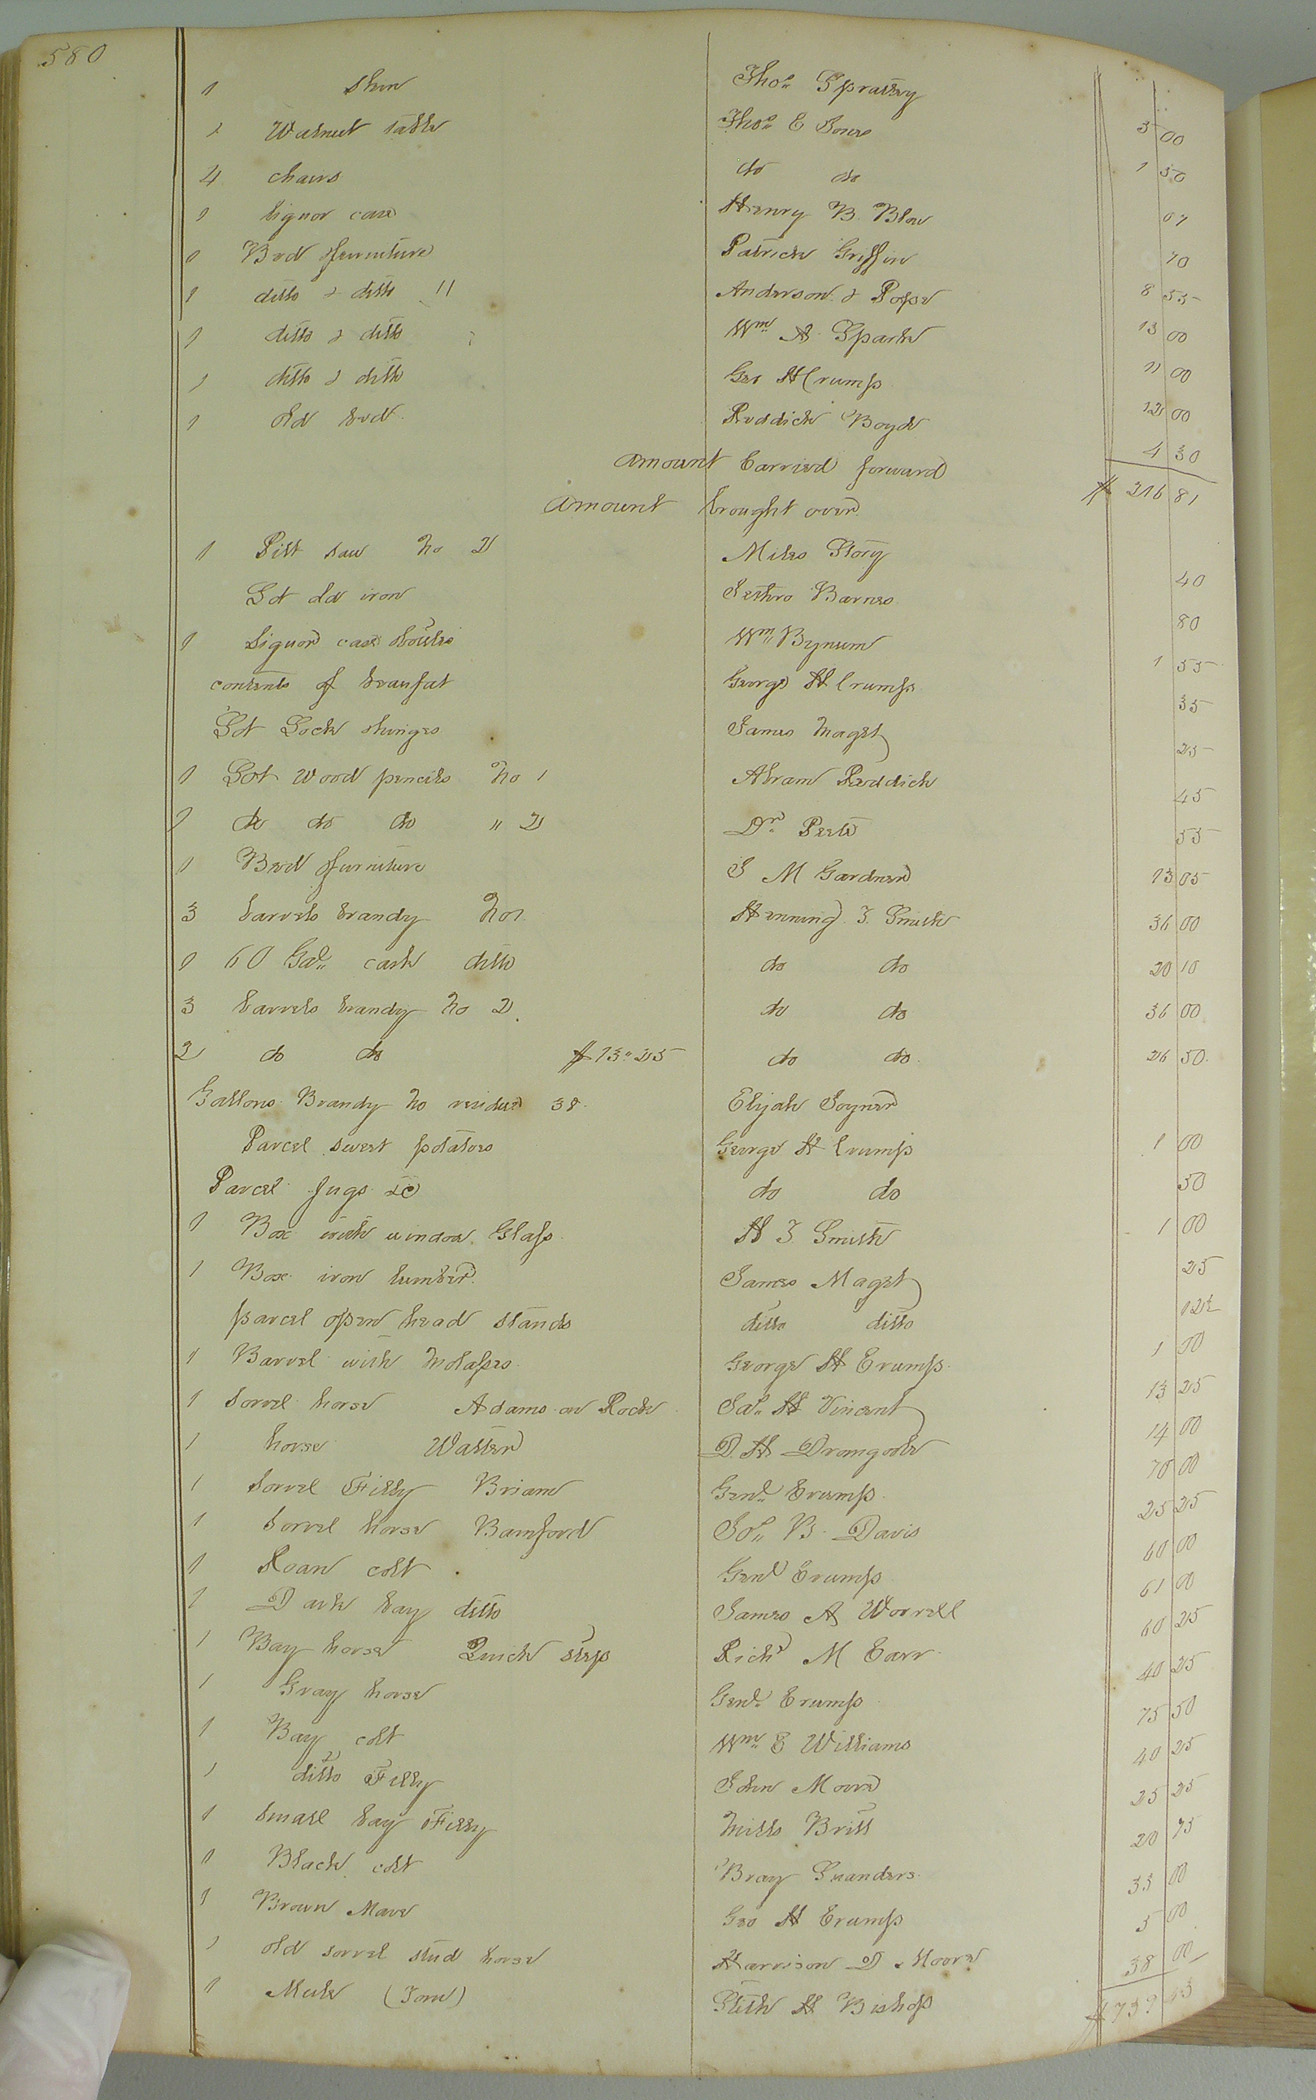 580
1 Thos Spratley
1 Walnut table Thos E Jones 3 00
4 chairs do do 1 50
1 liquor case Henry B Blow 07
1 Bed &furniture Patrick Griffin 10
1 ditto & ditto 11 Anderson & Pope 8 55
1 ditto & ditto Wm A Spark 13 00
1 ditto & ditto Geo H Crump 11 00
1 old bed Reddick Boyd 12 00
amount Carried forward 4 30
amount brought over $ 316 81
1 Pitt saw No 2 Miles Story 40
Lot old iron Jethro Barnes 80
1 Liquor case &bottles Wm Bynum 1 55
contents of beaufat George H Crump 35
Lot Lock &hinges James Maget 25
1 Lot wood pencils No 1 Abram Reddick 45
1 do do do " 2 Dr Peete 55
1 Bed &furniture J M Gardner 13 05
3 barrels brandy No 1 Henning T Smith 36 00
1 60 Gal cask ditto do do 20 10
3 barrels brandy No 2 do do 36 00
2 do do $13"25 do do 26 50
Gallons Brandy No residue 38 Elijah Joyner
Parcel sweet potatoes George H Crump 1 00
Parcel Jugs &c do do 50
1 Box with window Glass H T Smith 1 00
1 Box iron lumber James Maget 25
parcel open head stands ditto ditto 12½
1 Barrel with Molasses George H Crump 1 00
1 Sorrel horse Adams or Rock Jas H Vincent 13 25
1 horse Walter D. H. Dromgoole 14 00
1 Sorrel Filly Briam Genl Crump 70 00
1 Sorrel horse Bamford Jos B Davis 25 25
1 Roan colt Genl Crump 60 00
1 Dark bay ditto James A Worrell 61 00
1 Bay horse Quick step Richd M Carr 60 25
1 Gray horse Genl Crump 40 25
1 Bay colt Wm E Williams 75 50
1 ditto Filly John Moore 40 25
1 Small bay Filly Mills Britt 25 25
1 Black colt Bray Saunders 20 75
1 Brown Mare Geo H Crump 33 00
1 old sorrel stud horse Harrison D Moore 5 00
1 Mule (Tom) Stith H Bishop 38 00
$739